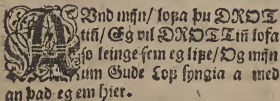 AVnd mijn/ loꝼa þu DROT
tiñ/ Eg vil DROTTiñ lofa
so leinge sem eg life/ Og mijn
um Gude Lof syngia a med
an þad eg em hier.